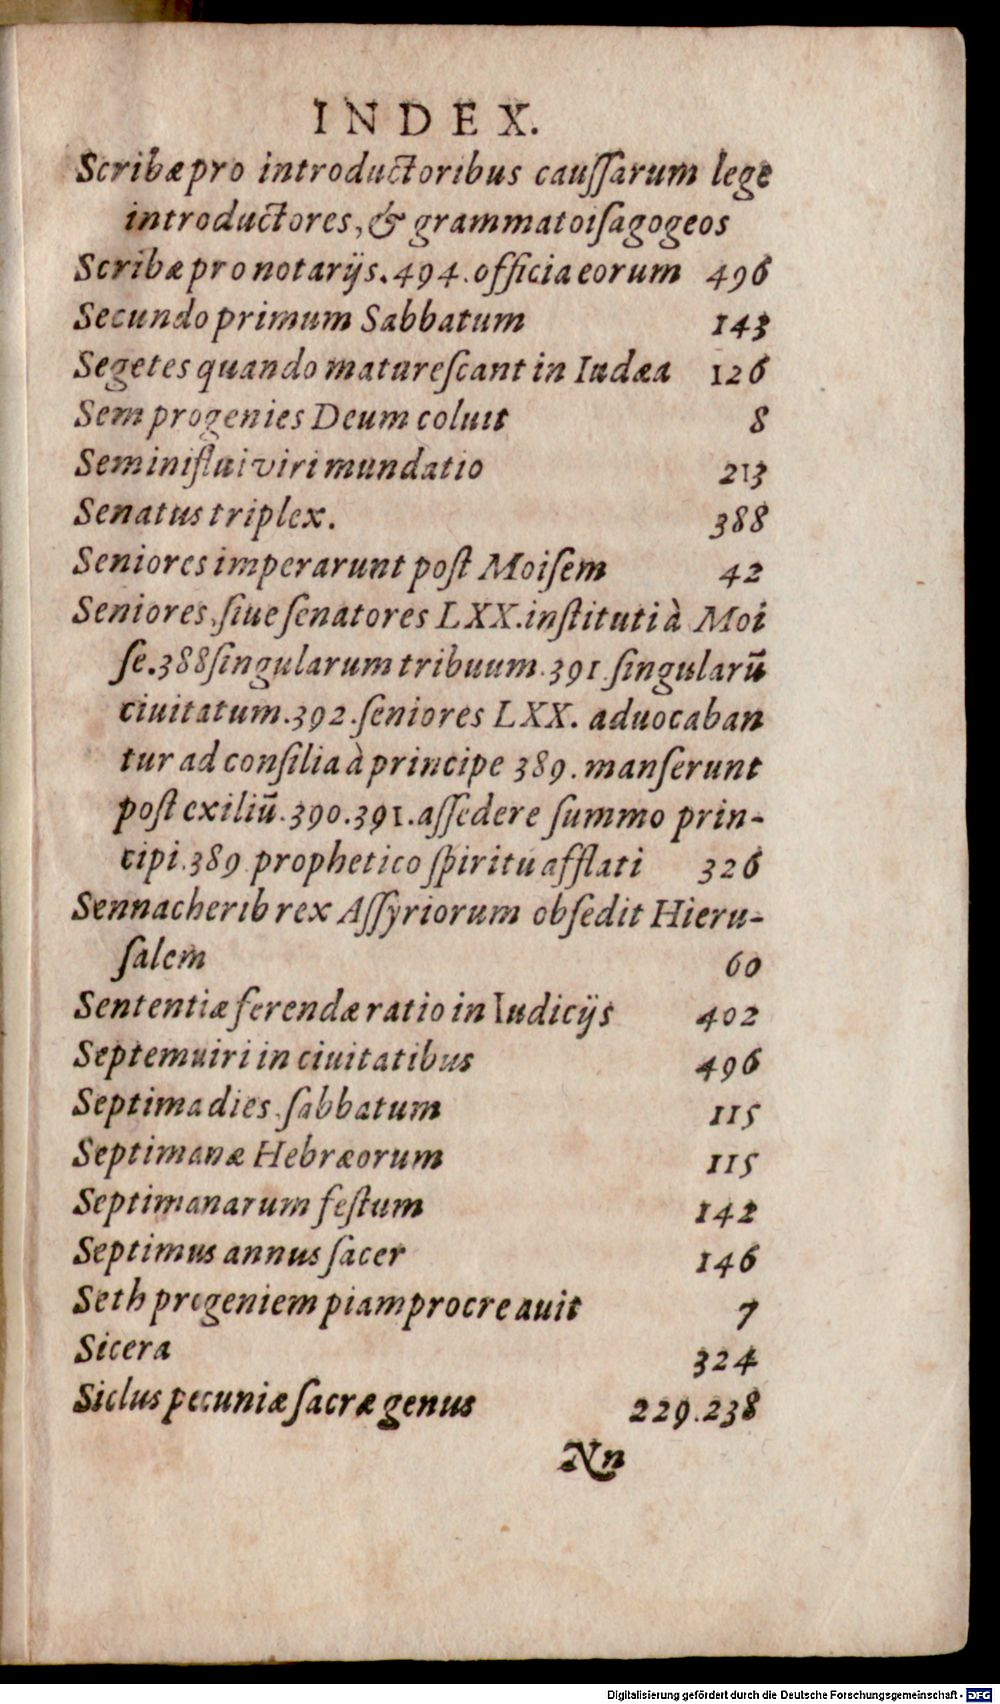 INDEX.
Scribæ pro introductoribus cauſſarum lege
introductores, & grammatoiſagogeos
Scribæ pro notarijs. 494. officia eorum 496
Secundo primum Sabbatum 143
Segetes quando matureſcant in Iudæa 126
Sem progenies Deum coluit 8
Seminiflui viri mundatio 213
Senatus triplex. 388
Seniores imperarunt poſt Moiſem 42
Seniores, ſiue ſenatores LXX. inſtituti à Moi
ſe. 388 ſingularum tribuum. 391. ſingularũ
ciuitatum. 392. ſeniores LXX. aduocaban
tur ad conſilia à principe 389. manſerunt
poſt exiliũ. 390. 391. aſſedere ſummo prin-
cipi. 389. prophetico ſpiritu afflati 326
Sennacherib rex Aſſyriorum obſedit Hieru-
ſalem 60
Sententiæ ferendæ ratio in Iudicijs 402
Septemuiri in ciuitatibus 496
Septima dies, ſabbatum 115
Septimanæ Hebræorum 115
Septimanarum feſtum 142
Septimus annus ſacer 146
Seth progeniem piam procreauit 7
Sicera 324
Siclus pecuniæ ſacræ genus 229. 238
Nn
Digitalisierung gefördert durch die Deutsche Forschungsgemeinschaft - DFG